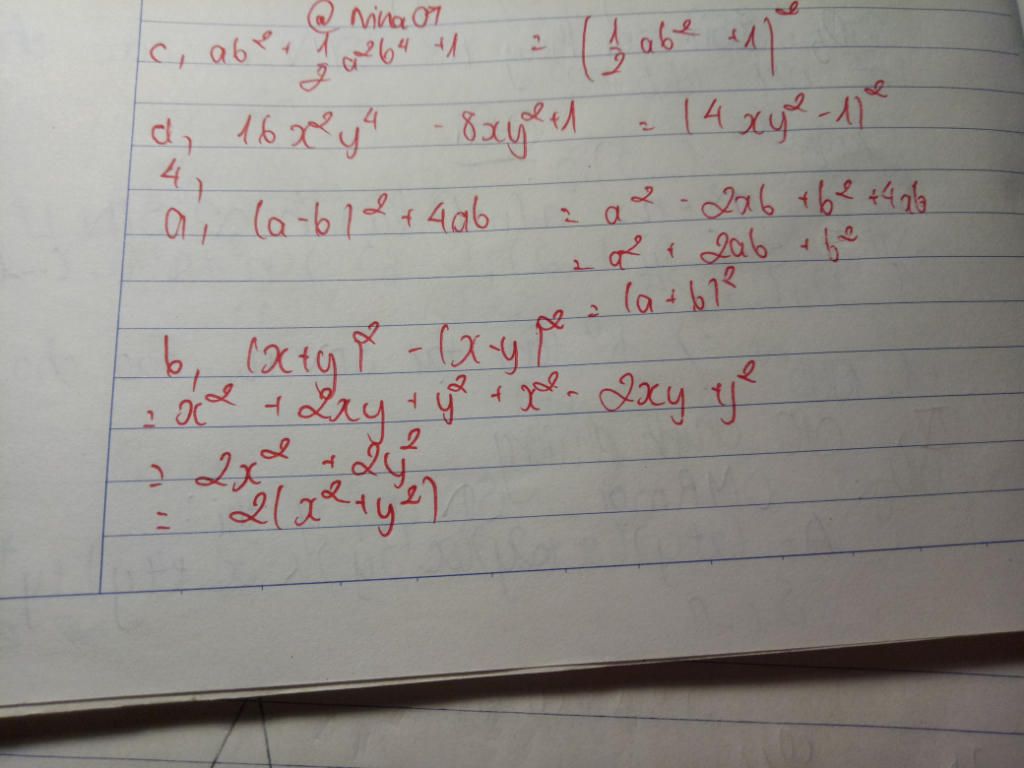 @ Nina07
c, ab² + 1/2 a²b⁴ + 1 = (1/2 ab² + 1)²
d, 16x²y⁴ - 8xy² + 1 = (4xy² - 1)²
4,
a, (a - b)² + 4ab = a² - 2ab + b² + 4ab
= a² + 2ab + b²
= (a + b)²
b, (x + y)² - (x - y)²
= x² + 2xy + y² + x² - 2xy + y²
= 2x² + 2y²
= 2(x² + y²)